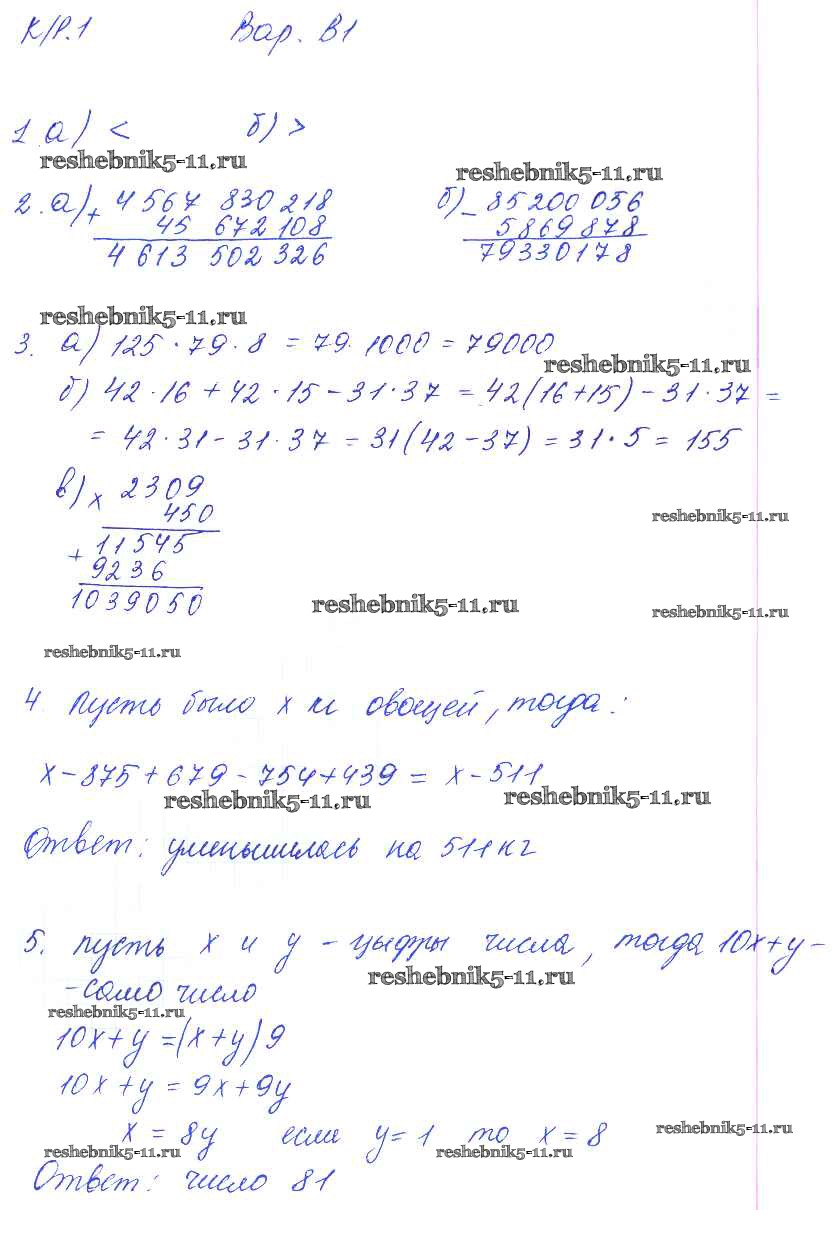 К/Р.1 Вар. В1
1 а) < б) >
reshebnik5-11.ru
reshebnik5-11.ru
2. а) + 4 567 830 218 б) - 85200056
45 672 108 5869878
4 613 502 326 79330178
reshebnik5-11.ru
3. а) 125 · 79 · 8 = 79 · 1000 = 79000
reshebnik5-11.ru
б) 42 · 16 + 42 · 15 - 31 · 37 = 42(16+15) - 31 · 37 =
= 42 · 31 - 31 · 37 = 31(42 - 37) = 31 · 5 = 155
в) x 2309
450
reshebnik5-11.ru
+ 11545
9236
1039050
reshebnik5-11.ru
reshebnik5-11.ru
reshebnik5-11.ru
4. Пусть было x кг овощей, тогда:
x - 875 + 679 - 754 + 439 = x - 511
reshebnik5-11.ru reshebnik5-11.ru
Ответ: уменьшилась на 511 кг
5. пусть x и y - цыфры числа, тогда 10x+y -
reshebnik5-11.ru
- само число
reshebnik5-11.ru
10x + y = (x + y) 9
10x + y = 9x + 9y
x = 8y если y = 1 то x = 8
reshebnik5-11.ru
reshebnik5-11.ru reshebnik5-11.ru
Ответ: число 81